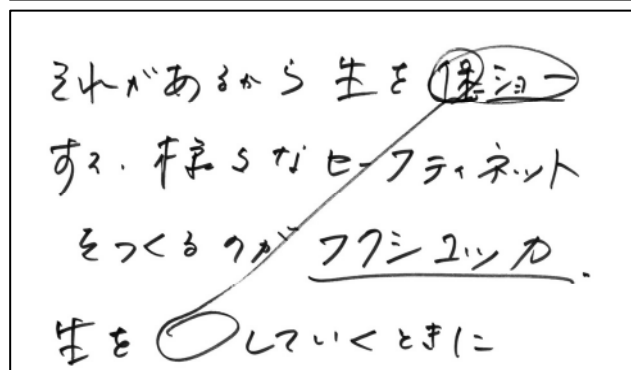 それがあるから 生を 保ショー
する.様らなセーフティネット
をつくるのがフクシコッカ.
生を ○していくときに